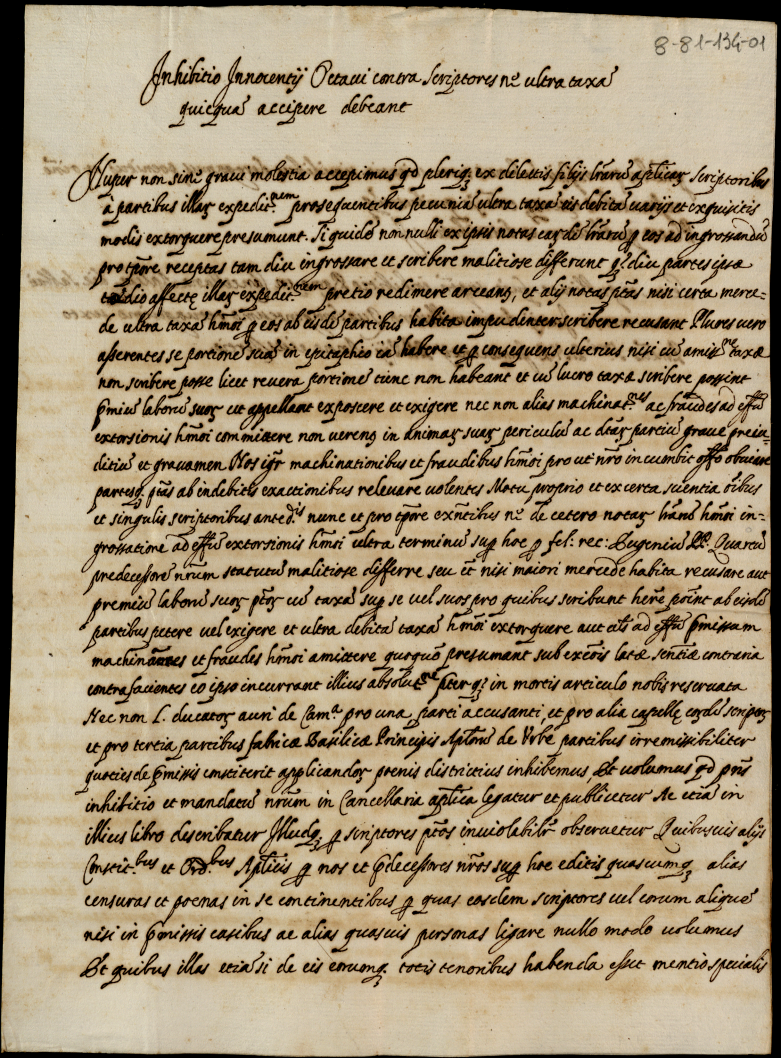 8-81-134-01
Inhibitio Innocentij Octaui contra Scriptores nē ultra taxā
quicquā accipere debeant
Nuper non sinē graui molestia accepimus qd̄ pleriq; ex dilectis filijs lr̄arū ap̄licaꝝ scriptoribus
à partibus illaꝝ expedit.nem prosequentibus pecuniā ultra taxā eis debitā uarijs et exquisitis
modis extorquere presumunt. Si quidē non nulli ex ipsis notas earūdē lr̄arū ꝑ eos ad ingrossandū
pro tp̄ore receptas tam diu ingrossare et scribere malitiose differunt qꝫ diu partes ipsæ
tædio affectę illaꝝ expedit.nem pretio redimere arceant, et alij notas p̄tas nisi certa merce-
de ultra taxā hm̄oi ꝑ eos ab eisdē partibus habita impudenter scribere recusant Plures uero
asserentes se portionē suā in epitaphio iā habere et ꝑ consequens ulterius nisi cū amiss.ne taxæ
non scribere posse licet reuera portionē tunc non habeant et cū lucro taxæ scribere possint
p̄miū laborū suoꝝ ut appellant exposcere et exigere nec non alias machinat.nes ac fraudes ad effm̄
extorsionis hm̄oi committere non uerent in animaꝝ suaꝝ periculū ac dictaꝝ partiū graue preiu-
ditiū et grauamen Nos igr̄ machinationibus et fraudibus hm̄oi prout nr̄o incumbit offō obuiare
partesq; p̄tas ab indebitis exactionibus releuare uolentes Motu proprio et ex certa scientia oībus
et singulis scriptoribus anted.is nunc et pro tp̄ore exn̄tibus nē de cetero notaꝝ lr̄arū hm̄oi in-
grossationē ad effm̄ extorsionis hm̄oi ultra terminū sup hoc ꝑ fel: rec: Eugeniū PP. Quartū
predecessorē nr̄um statutū malitiose differre seu et nisi maiori mercede habita recusare aut
premiū laborū suoꝝ p̄tos cū taxā sup se uel suos pro quibus scribunt here point ab eisdē
partibus petere uel exigere et ultra debitā taxā hm̄oi extorquere aut alās ad effm̄ p̄missum
machinātes et fraudes hm̄oi amittere quoquō presumant sub excōis latæ sentiæ contraria
contrafacientes eo ipso incurrant illius absolut.ne p̄ter qꝫ in mortis articulo nobis reseruata
Nec non L. ducatoꝝ auri de Cam.a pro una parti accusanti, et pro alia capellę eorūdē scriptoꝝ
et pro tertia partibus fabricæ Basilicæ Principis Aplorū de Urbe partibus irremissibiliter
quoties de p̄missis constiterit applicandoꝝ poenis districtius inhibemus Et uolumus qd̄ pn̄s
inhibitio et mandatū nr̄um in Cancellaria ap̄lica legatur et publicetur Ac etiā in
illius libro describatur Illudq; ꝑ scriptores p̄tos inuiolabilr̄ obseruetur Quibusuis alijs
Constit.bus et Ord.bus Ap̄licis ꝑ nos et p̄decessores nr̄os sup hoc editis quascumq; alias
censuras et poenas in se continentibus ꝑ quas eosdem scriptores uel eorum aliquē
nisi in p̄missis casibus ac alias quasuis personas ligare nullo modo uolumus
Et quibus illas etiā si de eis eorumq; totis tenoribus habenda esset mentio specialis